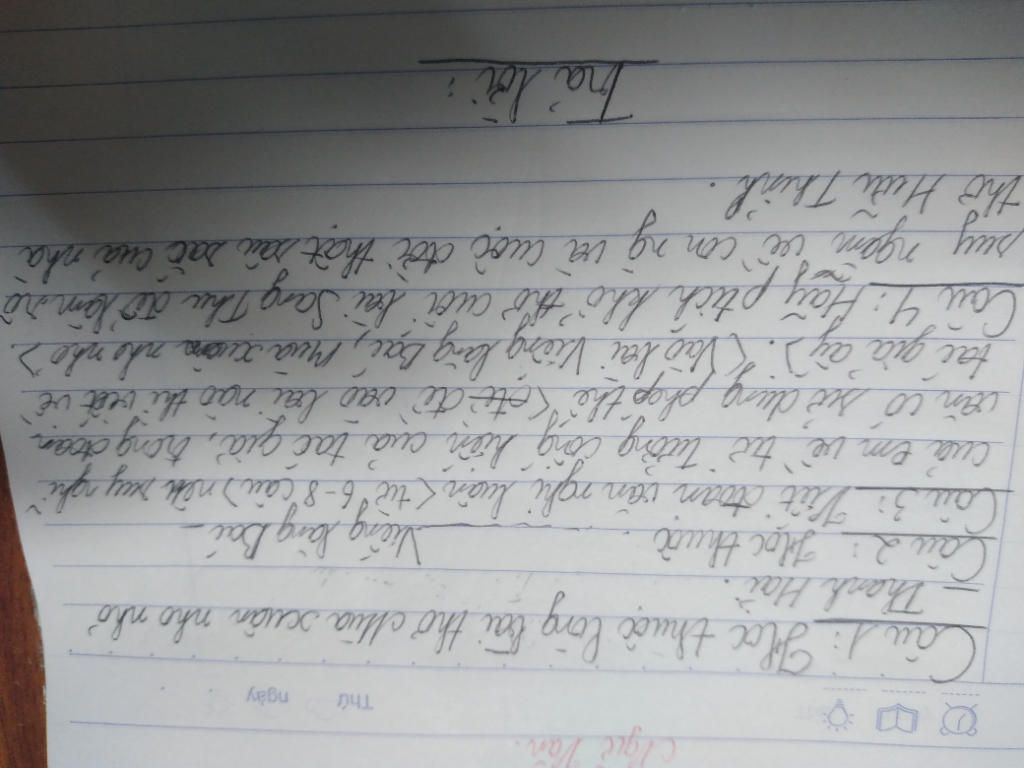 Ngữ Văn.
Thứ ngày
Câu 1: Học thuộc lòng bài thơ Mùa xuân nho nhỏ
- Thanh Hải.
Câu 2: Học thuộc Viếng lăng Bác
Câu 3: Viết đoạn văn nghị luận <từ 6-8 câu> nêu suy nghĩ
của em về tư tưởng cống hiến của tác giả, trong đoạn
văn có sử dụng phép thế < đi vào bài nào thì viết về
tác giả ấy>. <Vào bài Viếng lăng Bác, Mùa xuân nho nhỏ>.
Câu 4: Hãy ptích khổ thơ cuối bài Sang Thu để làm rõ
suy ngẫm về con ng và cuộc đời thật sâu sắc của nhà
thơ Hữu Thỉnh.
Trả lời: